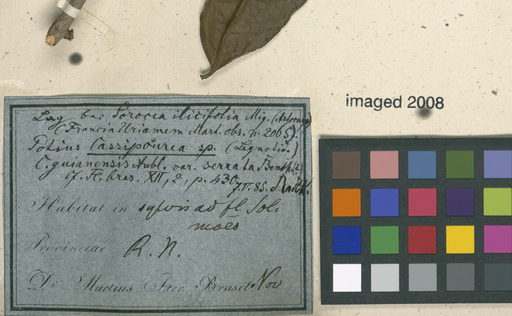 Sorocea ilicifolia Miq. (Artocarp)
(Francia Uriamem Mart. obs. n. 2065)
Potius Cassipourea sp. (Legnotid.)
C. guianensis Aubl. var. serrata Benth.
cf. Fl. bras. XII, 2, p. 430
Habitat in sylvis ad fl. Soli
moes
Provinciae R. N.
De Martius Iter Brasil Nov
imaged 2008